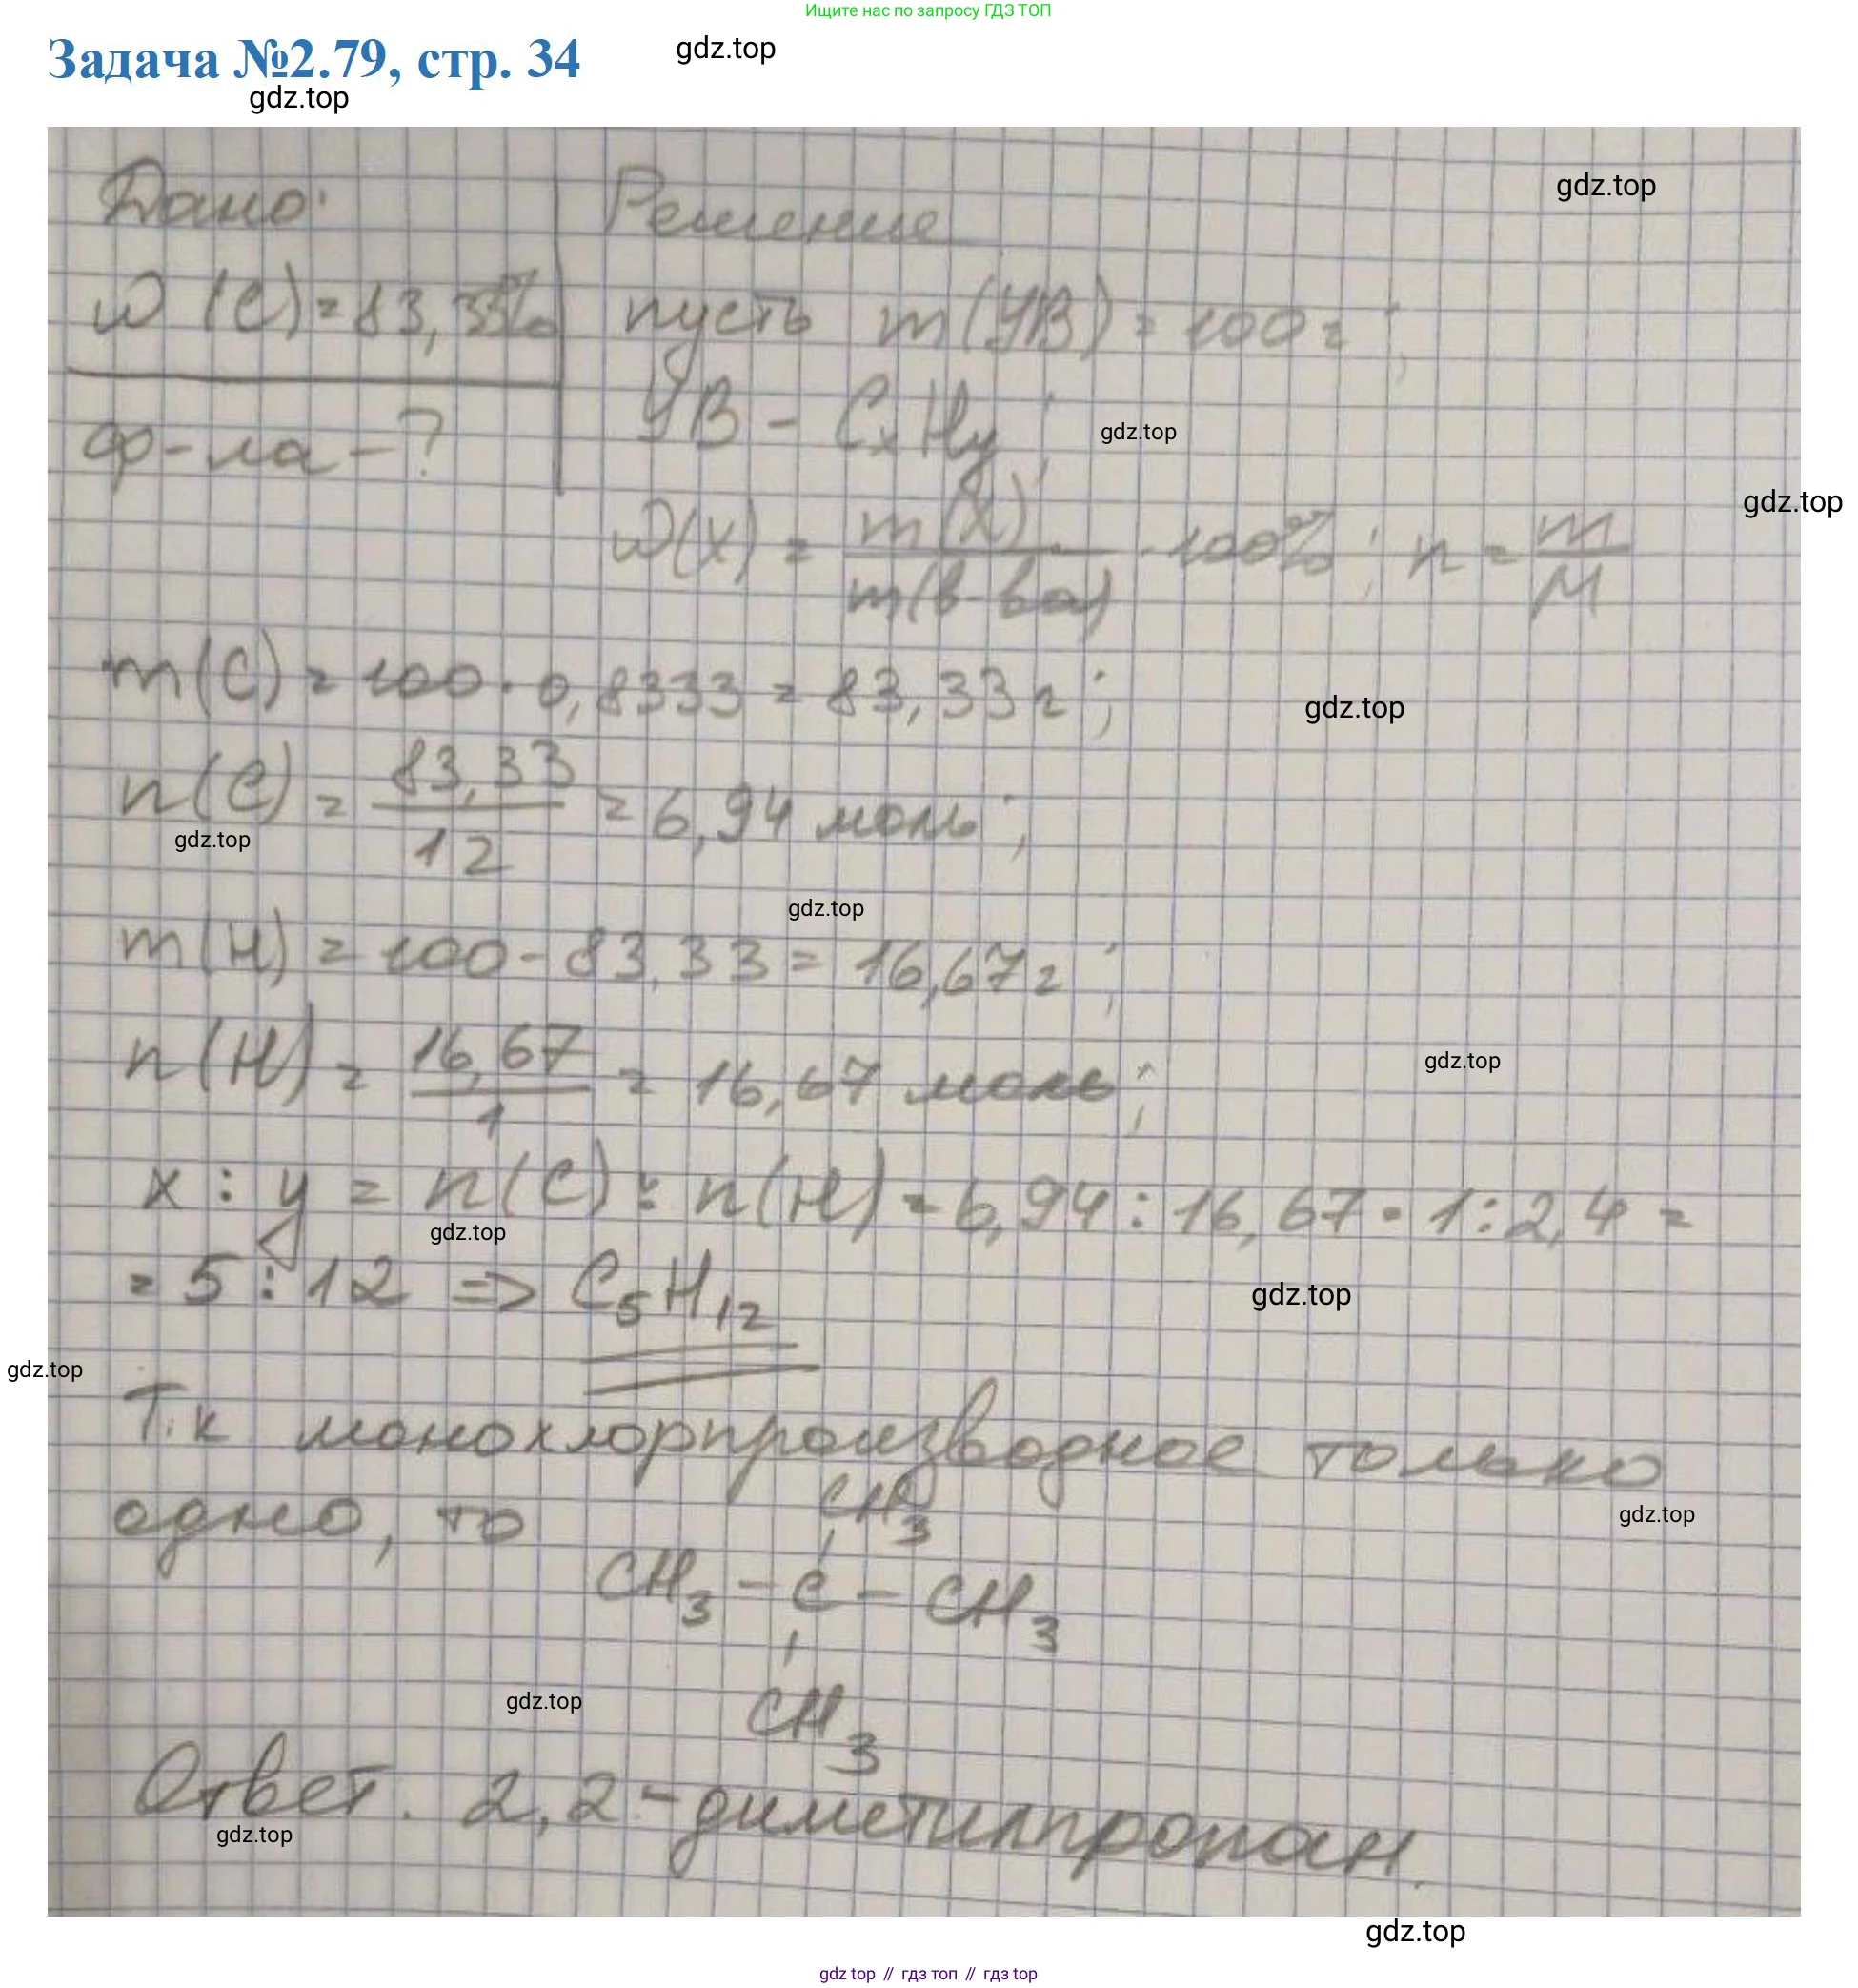 Ищите нас по запросу ГДЗ ТОП
Задача №2.79, стр. 34
gdz.top
gdz.top
Дано:
Решение
gdz.top
ω (C) = 83,33%
пусть m(УВ) = 100 г ;
ф-ла - ?
УВ - CxHy ;
gdz.top
gdz.top
ω(x) = m(x) / m(в-ва) · 100% ; n = m / M
m(C) = 100 · 0,8333 = 83,33 г ;
gdz.top
n(C) = 83,33 / 12 = 6,94 моль ;
gdz.top
gdz.top
m(H) = 100 - 83,33 = 16,67 г ;
n(H) = 16,67 / 1 = 16,67 моль ;
gdz.top
x : y = n(C) : n(H) = 6,94 : 16,67 = 1 : 2,4 =
gdz.top
= 5 : 12 => C5H12
gdz.top
gdz.top
Т.к монохлорпроизводное только
одно, то
gdz.top
CH3
CH3 - C - CH3
CH3
gdz.top
Ответ. 2,2-диметилпропан.
gdz.top
gdz.top
gdz top // гдз топ // gdz top